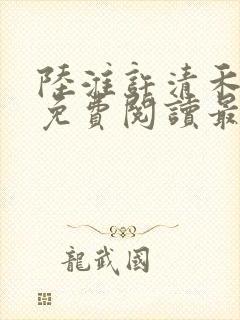 陸淮許清禾
免費閱讀最
龍武國